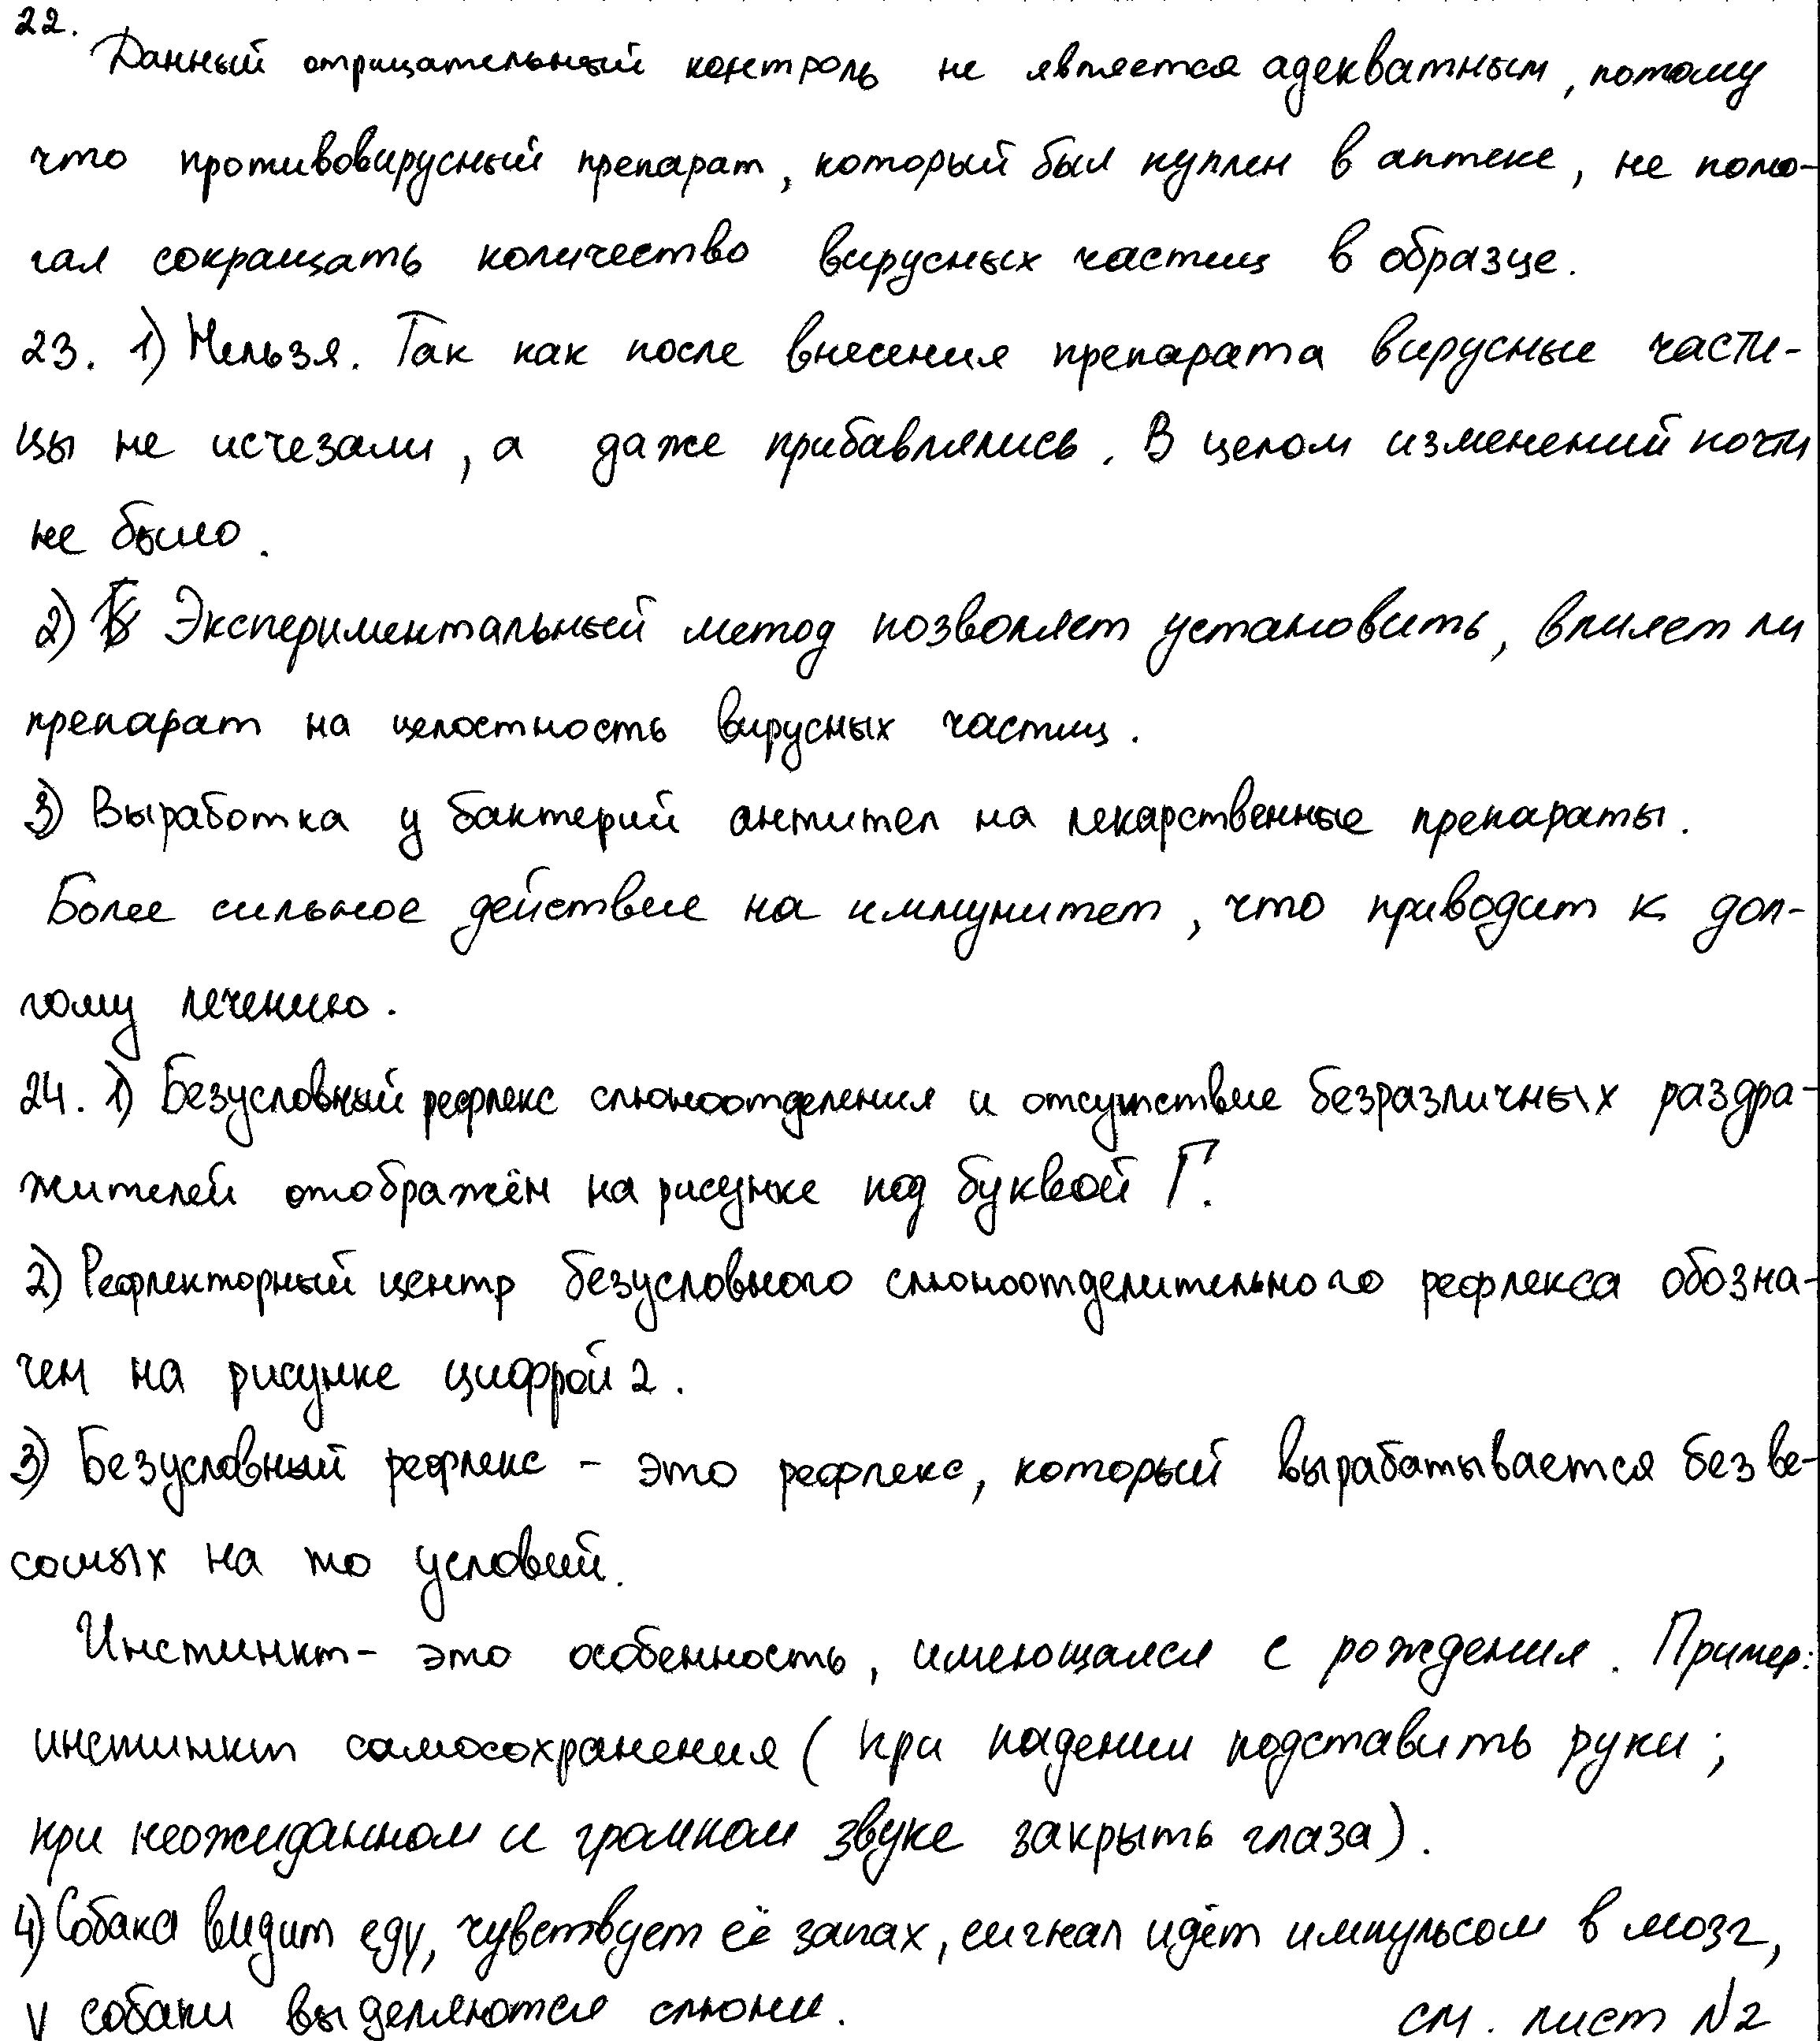 22.
Данный отрицательный контроль не является адекватным, потому
что противовирусный препарат, который был куплен в аптеке, не помо-
гал сокращать количество вирусных частиц в образце.
23. 1) Нельзя. Так как после внесения препарата вирусные части-
цы не исчезали, а даже прибавлялись. В целом изменений почти
не было.
2) Экспериментальный метод позволяет установить, влияет ли
препарат на целостность вирусных частиц.
3) Выработка у бактерий антител на лекарственные препараты.
Более сильное действие на иммунитет, что приводит к дол-
гому лечению.
24. 1) Безусловный рефлекс слюноотделения и отсутствие безразличных раздра-
жителей отображён на рисунке под буквой Г.
2) Рефлекторный центр безусловного слюноотделительного рефлекса обозна-
чен на рисунке цифрой 2.
3) Безусловный рефлекс - это рефлекс, который вырабатывается без ве-
сомых на то условий.
Инстинкт - это особенность, имеющаяся с рождения. Пример:
инстинкт самосохранения (при падении подставить руки;
при неожиданном и громком звуке закрыть глаза).
4) Собака видит еду, чувствует её запах, сигнал идёт импульсом в мозг,
у собаки выделяются слюни. см. лист №2